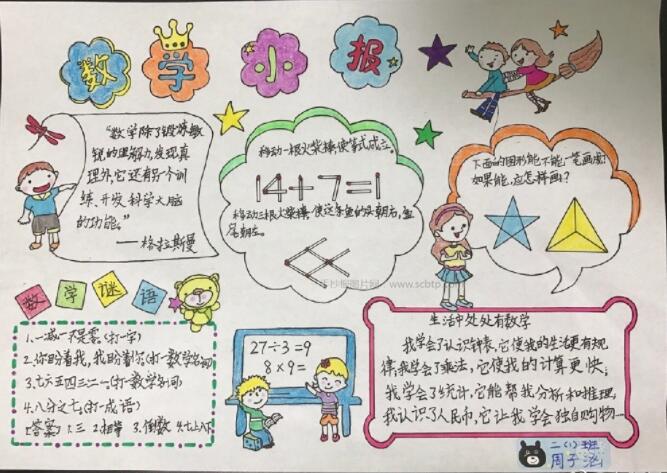 数学小报
“数学除了锻炼敏
锐的理解力,发现真
理外,它还有另一个训
练、开发科学大脑
的功能。”
——格拉斯曼
移动一根火柴棒使等式成立。
14+7=1
移动三根火柴棒,使这条鱼的头朝右,鱼
尾朝左。
下面的图形能不能一笔画成?
如果能,应怎样画?
数学谜语
1.一减一不是零(打一字)
2.你盼着我,我盼着你(打一数学名词)
3.七六五四三二一(打一数学名词)
4.八分之七(打一成语)
[答案] 1.三 2.相等 3.倒数 4.七上八下
27÷3=9
8×9=
生活中处处有数学
我学会了认识钟表,它使我的生活更有规
律;我学会了乘法,它使我的计算更快;
我学会了统计,它能帮我分析和推理;
我认识了人民币,它让我学会独自购物…
二(1)班
周子涵
www.scbtp.com